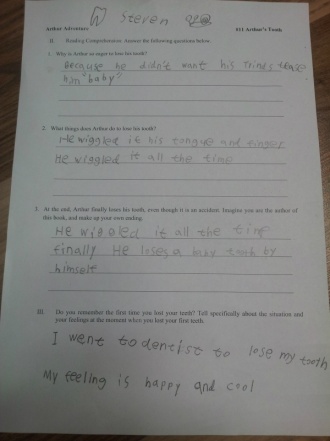 Steven
Arthur Adventure #11 Arthur's Tooth
II. Reading Comprehension: Answer the following questions below.
1. Why is Arthur so eager to lose his tooth?
Because he didn't want his frinds tease
him "baby"
2. What things does Arthur do to lose his tooth?
He wiggled it his tongue and finger
He wiggled it all the time
3. At the end, Arthur finally loses his tooth, even though it is an accident. Imagine you are the author of
this book, and make up your own ending.
He wiggled it all the time
finally He loses a baby tooth by
himself
III. Do you remember the first time you lost your teeth? Tell specifically about the situation and
your feelings at the moment when you lost your first teeth.
I went to dentist to lose my tooth
My feeling is happy and cool